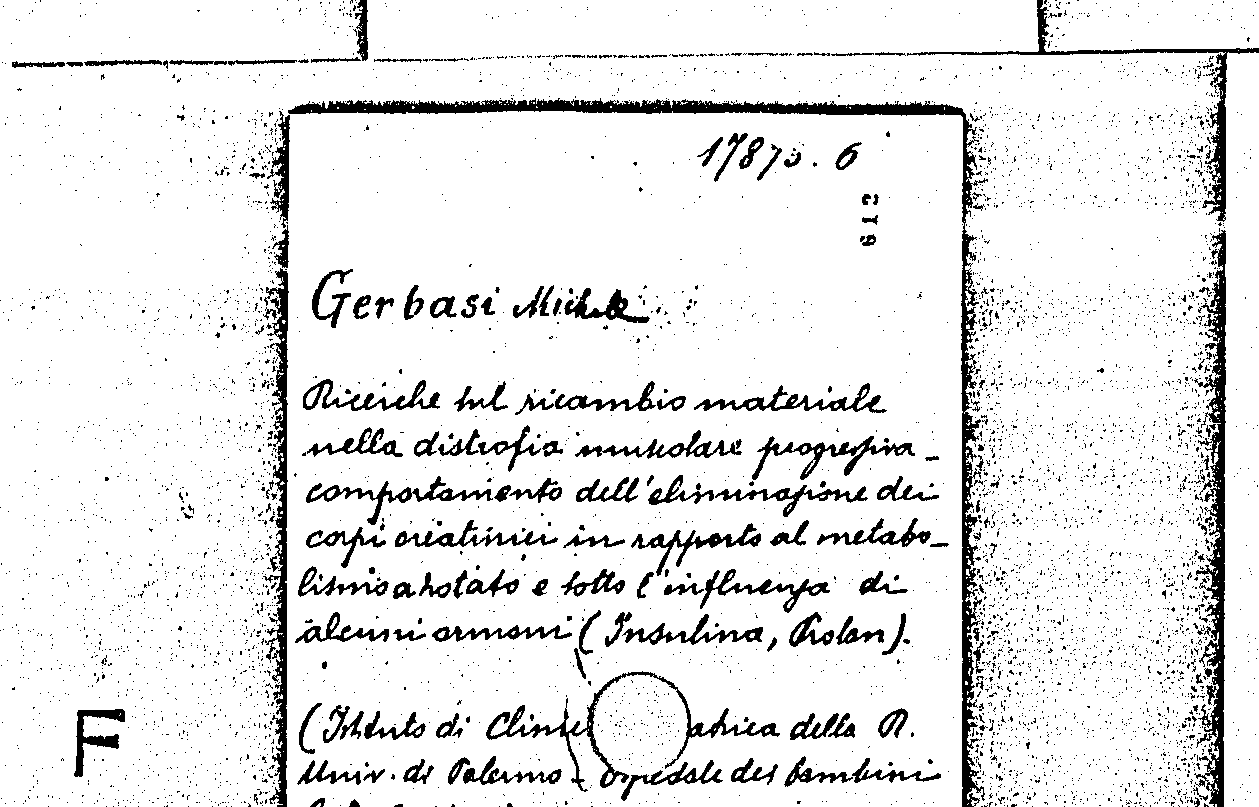 17875. 6
612
Gerbasi Michele
Ricerche sul ricambio materiale
nella distrofia muscolare progressiva -
comportamento dell'eliminazione dei
corpi creatinici in rapporto al metabo-
lismo azotato e sotto l'influenza di
alcuni ormoni (Insulina, Prolan).
(Istituto di Clinic atrica della R.
Univ. di Palermo - Ospedale dei bambini
F